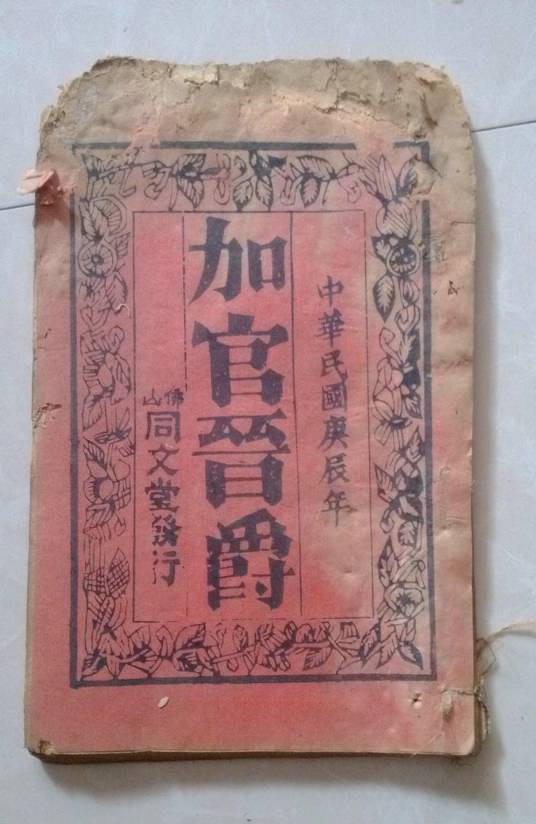 中華民國庚辰年
加官晉爵
佛山
同文堂發行